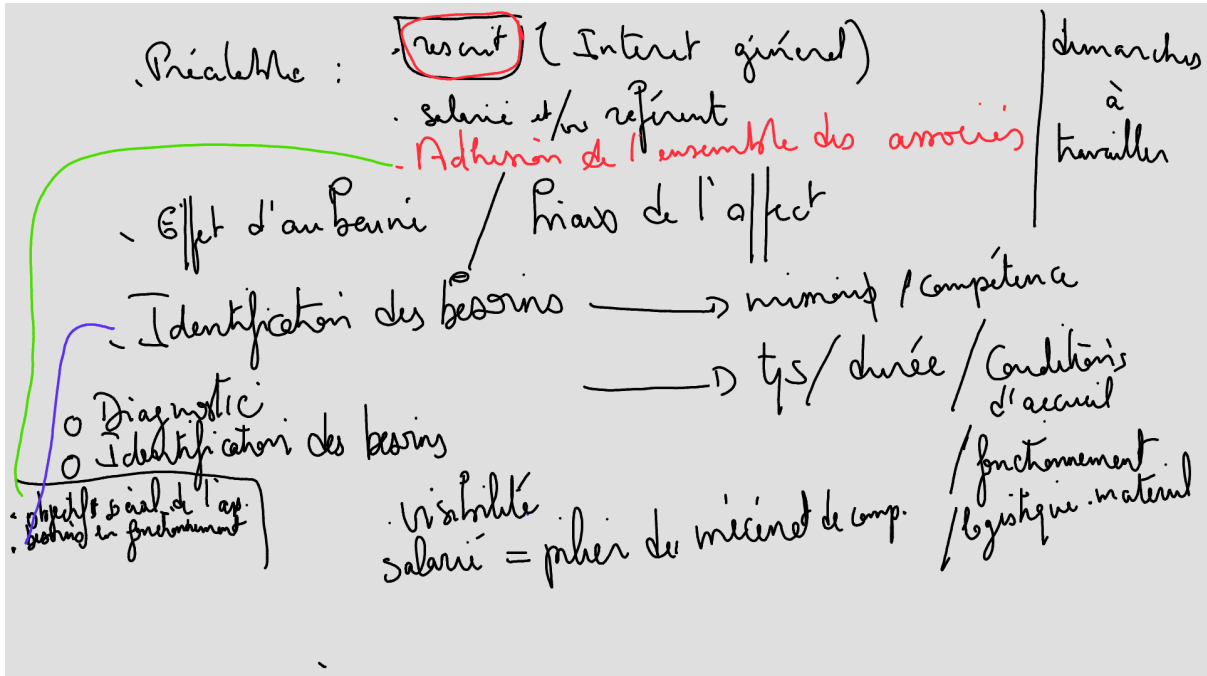 . Préalable :
. rescrit ( Intérêt général )
démarches
à
travailler
. salarié et/ou référent
. Adhésion de l'ensemble des associés
. Effet d'aubaine
de l'affect
. Identification des besoins → missions / compétence
→ tps / durée / Conditions
d'accueil
/ fonctionnement
/ logistique . matériel
o Diagnostic
o Identification des besoins
. objectif social de l'
. besoins en fonctionnement
. visibilité
salarié = pilier du mécénat de comp.